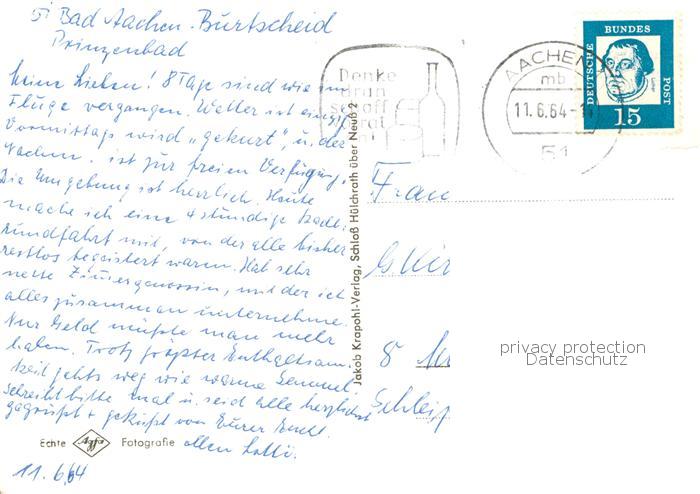 Bad Aachen-Burtscheid
Prinzenbad
Meine Lieben! 8 Tage sind wie im
Fluge vergangen. Wetter ist
Vormittags wird „gekurt“, u. der
Nachm. ist zur freien Verfügung.
Die Umgebung ist herrlich. Heute
mache ich eine 4 stündige
rundfahrt mit, von der alle bisher
restlos begeistert waren. Hab sehr
nette Zimmergenossin, mit der ich
alles zusammen unternehme.
Nur Geld müßte man mehr
haben. Trotz größter Enthaltsam-
keit gehts weg wie warme Semmel
Schreibt bitte mal u. seid alle herzlichst
gegrüßt + geküßt von Eurer
ollen Lotti.
Echte Agfa Fotografie
11.6.64
Jakob Krapohl-Verlag, Schloß Hülchrath über Neuß 2
Denke
dran
schaff
Vorrat
AACHEN
mb
11.6.64-1
51
DEUTSCHE BUNDES POST
15
Frau
G. Kir
8
Schleiß
privacy protection
Datenschutz